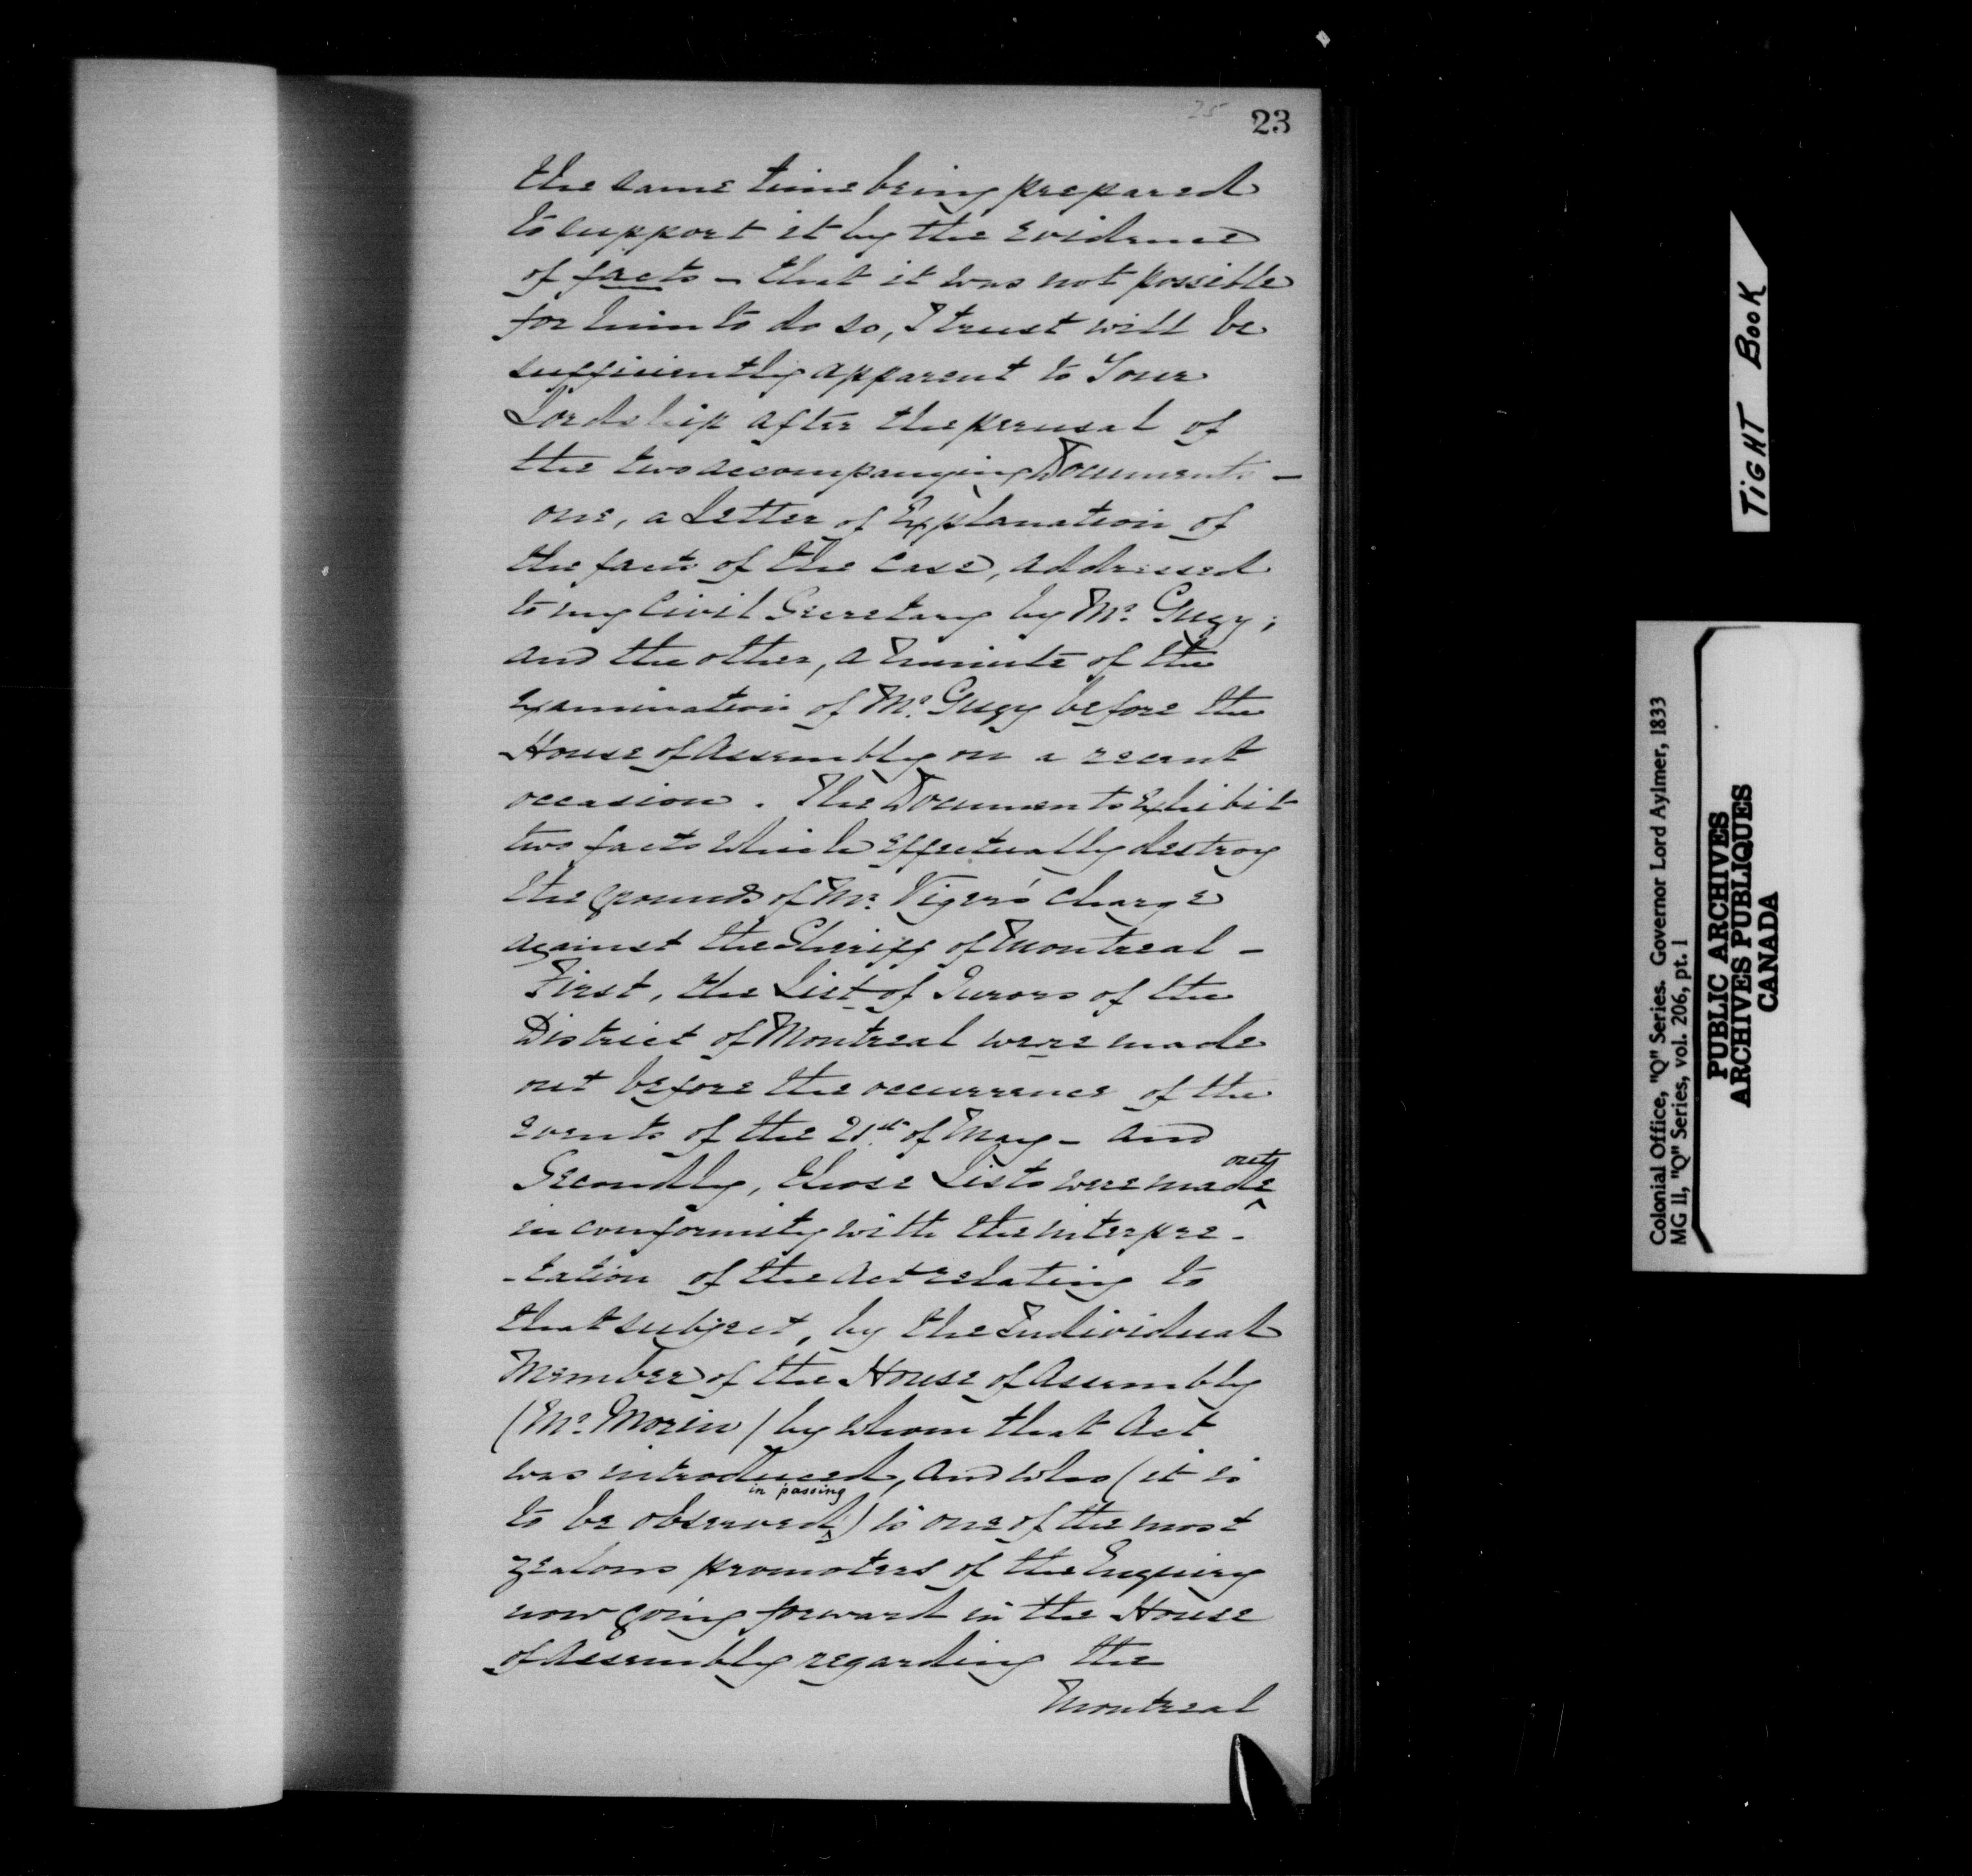 25
23
the same time being prepared
to support it by the evidence
of facts – that it was not possible
for him to do so, I trust will be
sufficiently apparent to Your
Lordship after the perusal of
the two accompanying Documents –
one, a Letter of Explanation of
the facts of the case, addressed
to my Civil Secretary by Mr. Gugy;
and the other, a Minute of the
examination of Mr. Gugy before the
House of Assembly on a recent
occasion. The Documents Exhibit
two facts which effectually destroy
the grounds of Mr. Viger's charge
against the Sheriff of Montreal –
First, the List of Jurors of the
District of Montreal were made
out before the occurrence of the
events of the 21st. of May – and
Secondly, those Lists were made out
in conformity with the interpre-
-tation of the Act relating to
that subject, by the Individual
Member of the House of Assembly
(Mr. Morin) by whom that Act
was introduced, and who (it is
to be observed in passing) is one of the most
zealous promoters of the Enquiry
now going forward in the House
of Assembly regarding the
Montreal
TIGHT BOOK
Colonial Office, "Q" Series. Governor Lord Aylmer, 1833
MG 11, "Q" Series, vol. 206, pt. 1
PUBLIC ARCHIVES
ARCHIVES PUBLIQUES
CANADA